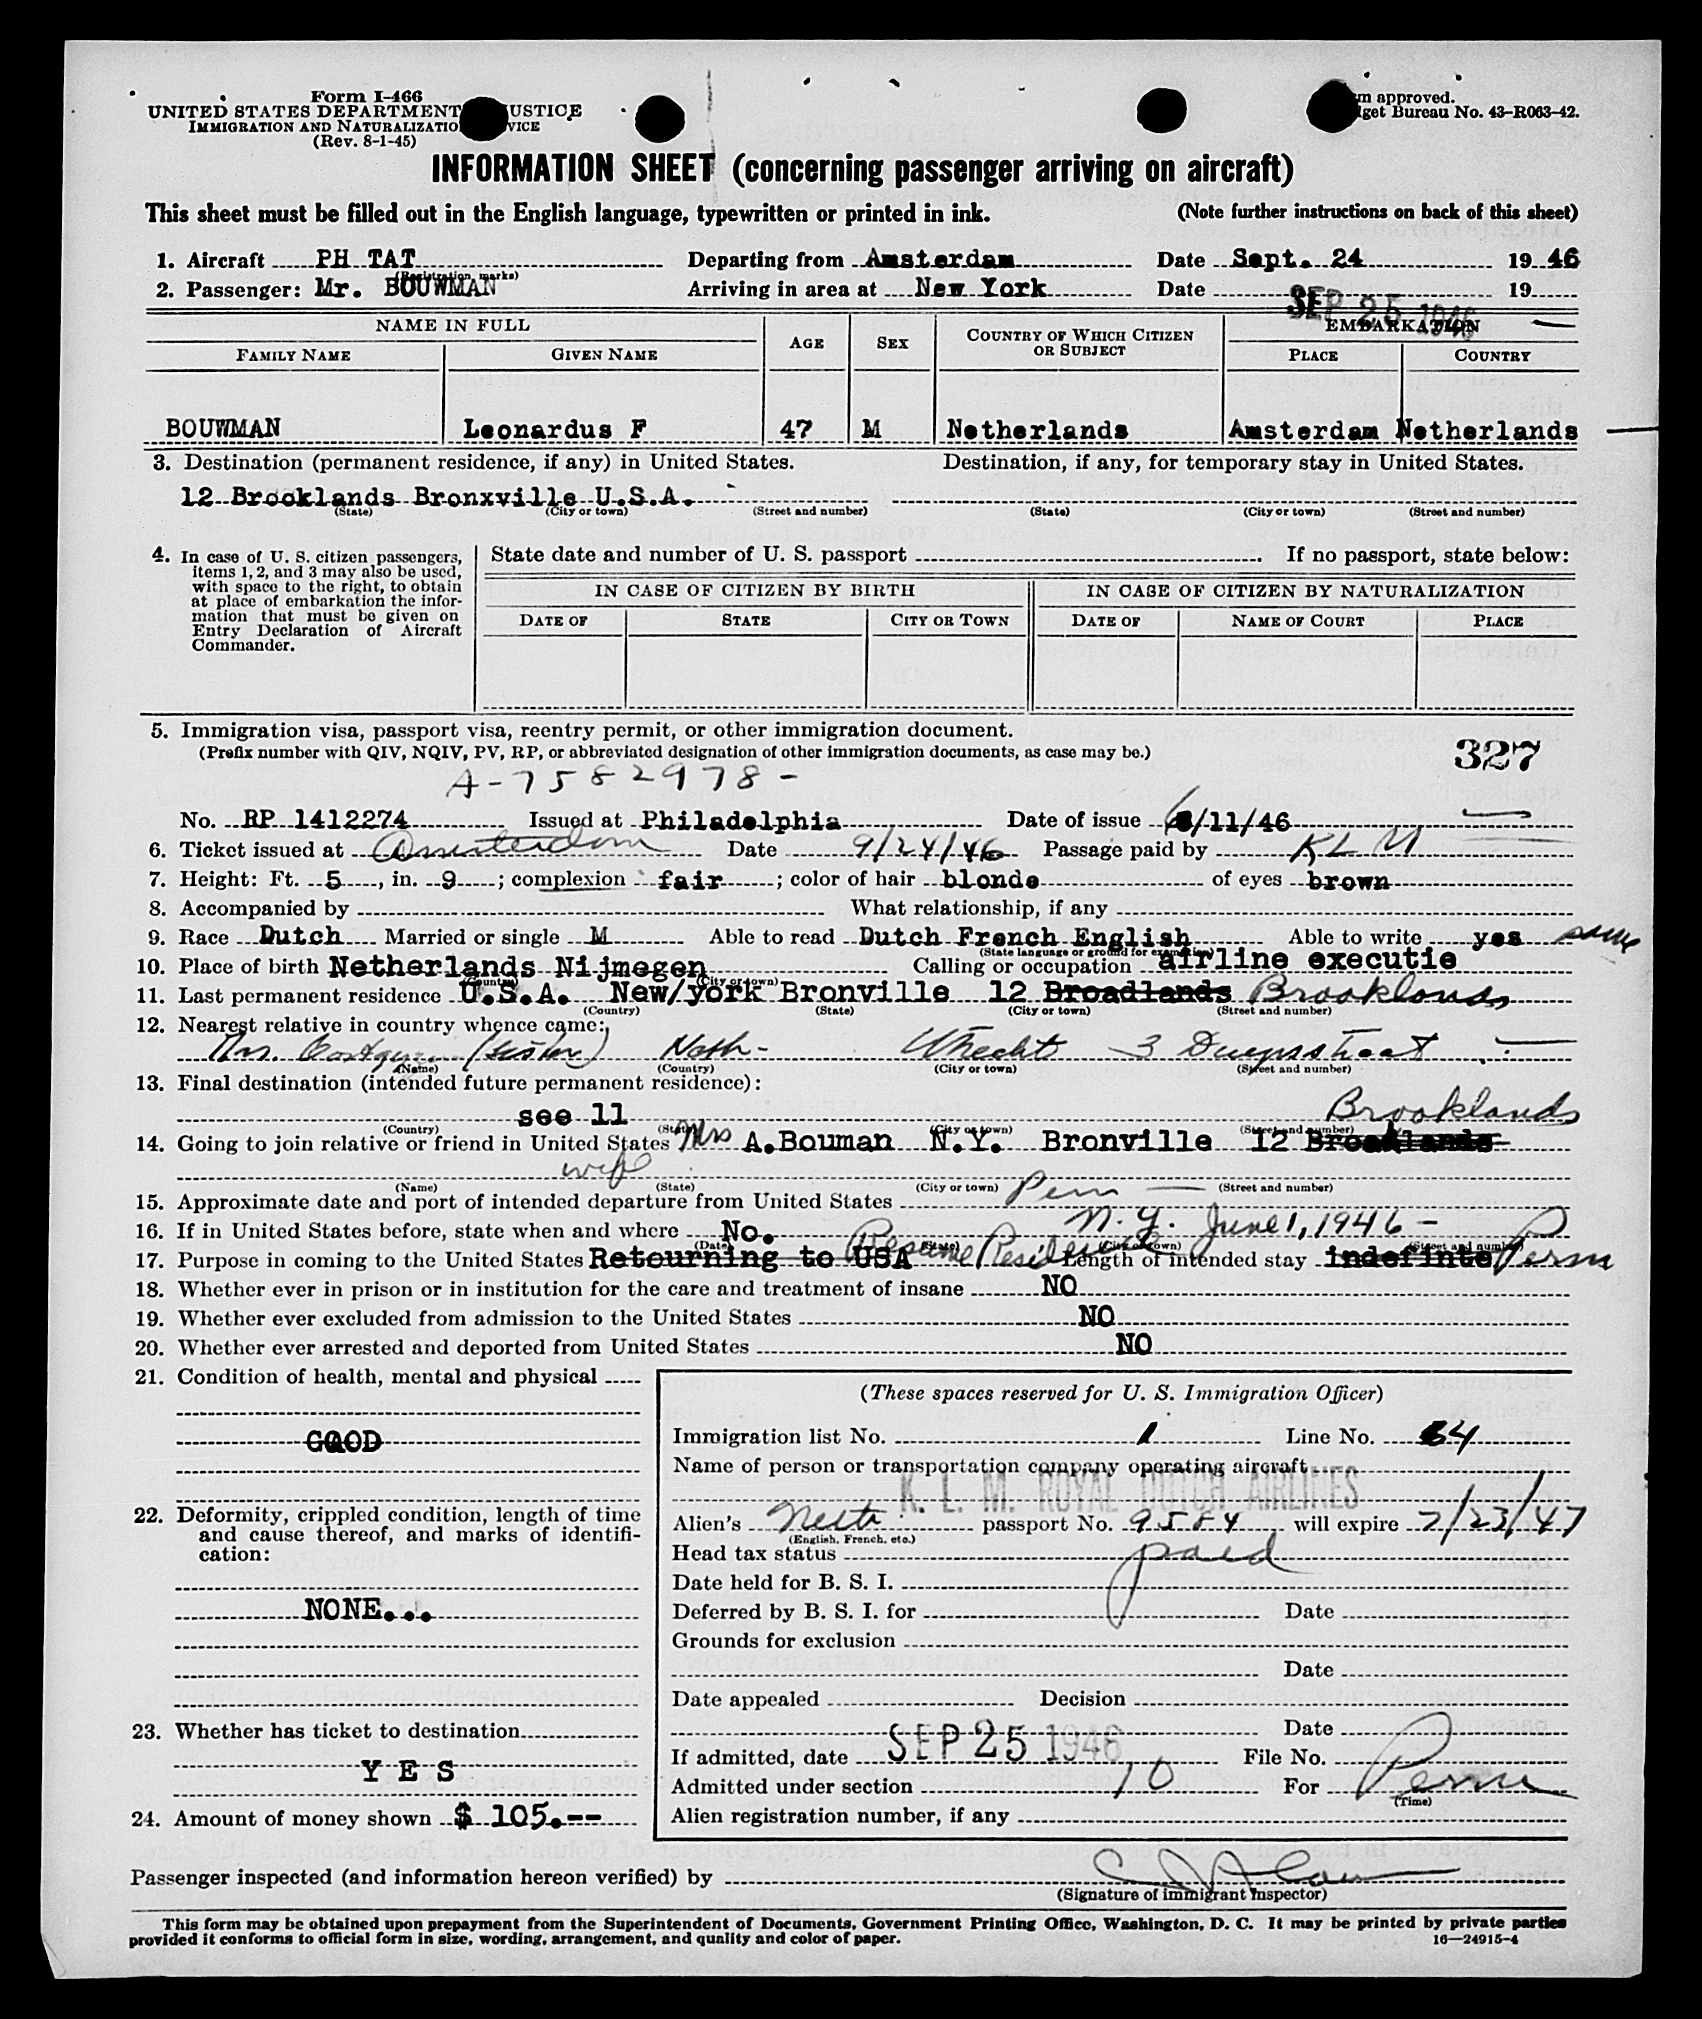 Form I-466
UNITED STATES DEPARTMENT USTICE
IMMIGRATION AND NATURALIZATIO VICE
(Rev. 8-1-45)
m approved.
get Bureau No. 43-R063-42.
INFORMATION SHEET (concerning passenger arriving on aircraft)
This sheet must be filled out in the English language, typewritten or printed in ink. (Note further instructions on back of this sheet)
1. Aircraft PH TAT Departing from Amsterdam Date Sept. 24 19 46
(Registration marks)
2. Passenger: Mr. BOUWMAN Arriving in area at New York Date SEP 25 1946 19
NAME IN FULL AGE SEX COUNTRY OF WHICH CITIZEN OR SUBJECT EMBARKATION
FAMILY NAME GIVEN NAME PLACE COUNTRY
BOUWMAN Leonardus F 47 M Netherlands Amsterdam Netherlands
3. Destination (permanent residence, if any) in United States. Destination, if any, for temporary stay in United States.
12 Brooklands Bronxville U.S.A.
(State) (City or town) (Street and number) (State) (City or town) (Street and number)
4. In case of U. S. citizen passengers, items 1, 2, and 3 may also be used, with space to the right, to obtain at place of embarkation the information that must be given on Entry Declaration of Aircraft Commander.
State date and number of U. S. passport . If no passport, state below:
IN CASE OF CITIZEN BY BIRTH IN CASE OF CITIZEN BY NATURALIZATION
DATE OF STATE CITY OR TOWN DATE OF NAME OF COURT PLACE
5. Immigration visa, passport visa, reentry permit, or other immigration document.
(Prefix number with QIV, NQIV, PV, RP, or abbreviated designation of other immigration documents, as case may be.)
327
A-7582978-
No. RP 1412274 Issued at Philadelphia Date of issue 6/11/46
6. Ticket issued at Amsterdam Date 9/24/46 Passage paid by KLM
7. Height: Ft. 5, in. 9; complexion fair; color of hair blonde of eyes brown
8. Accompanied by What relationship, if any
9. Race Dutch Married or single M Able to read Dutch French English Able to write yes same
(State language or ground for exemption)
10. Place of birth Netherlands Nijmegen Calling or occupation airline executie
(Country) (City or town)
11. Last permanent residence U.S.A. New/york Bronville 12 Broadlands Brooklands
(Country) (State) (City or town) (Street and number)
12. Nearest relative in country whence came:
Mrs. (sister) Neth- Utrecht 3
(Name) (Country) (City or town) (Street and number)
13. Final destination (intended future permanent residence):
see 11 Brooklands
(Country) (State) (City or town) (Street and number)
14. Going to join relative or friend in United States Mrs A.Bouman N.Y. Bronville 12 Broadlands
wife
(Name) (State) (City or town) (Street and number)
15. Approximate date and port of intended departure from United States Perm
16. If in United States before, state when and where No. N.Y. June 1, 1946 -
(Date) (State) (City or town) (Street and number)
17. Purpose in coming to the United States Retourning to USA Resume Residence Length of intended stay indefinte Perm
18. Whether ever in prison or in institution for the care and treatment of insane NO
19. Whether ever excluded from admission to the United States NO
20. Whether ever arrested and deported from United States NO
21. Condition of health, mental and physical
GOOD
22. Deformity, crippled condition, length of time and cause thereof, and marks of identification:
NONE...
23. Whether has ticket to destination
Y E S
24. Amount of money shown $ 105.--
(These spaces reserved for U. S. Immigration Officer)
Immigration list No. 1 Line No. 64
Name of person or transportation company operating aircraft
K. L. M. ROYAL DUTCH AIRLINES
Alien's Neth passport No. 9584 will expire 7/23/47
(English, French, etc.)
Head tax status paid
Date held for B. S. I.
Deferred by B. S. I. for Date
Grounds for exclusion
Date
Date appealed Decision
Date
If admitted, date SEP 25 1946 File No.
Admitted under section 10 For Perm
(Time)
Alien registration number, if any
Passenger inspected (and information hereon verified) by
(Signature of immigrant inspector)
This form may be obtained upon prepayment from the Superintendent of Documents, Government Printing Office, Washington, D. C. It may be printed by private parties
provided it conforms to official form in size, wording, arrangement, and quality and color of paper. 16—24915-4